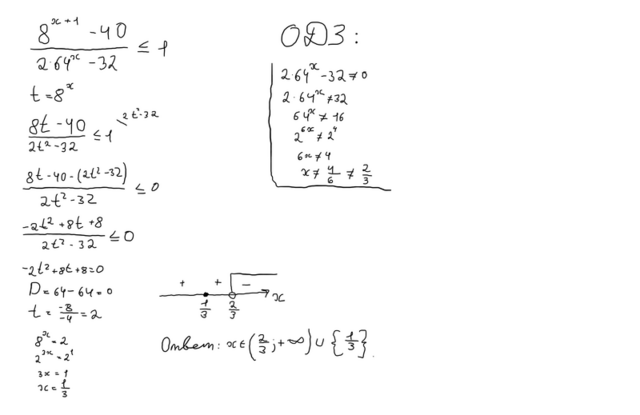 8^(x+1) - 40 / 2·64^x - 32 ≤ 1
t = 8^x
8t - 40 / 2t² - 32 ≤ 1 \ 2t² - 32
8t - 40 - (2t² - 32) / 2t² - 32 ≤ 0
-2t² + 8t + 8 / 2t² - 32 ≤ 0
-2t² + 8t + 8 = 0
D = 64 - 64 = 0
t = -8/-4 = 2
8^x = 2
2^(3x) = 2^1
3x = 1
x = 1/3
ОДЗ:
2·64^x - 32 ≠ 0
2·64^x ≠ 32
64^x ≠ 16
2^(6x) ≠ 2^4
6x ≠ 4
x ≠ 4/6 ≠ 2/3
+ + -
1/3 2/3 x
Ответ: x ∈ (2/3; +∞) ∪ {1/3}.